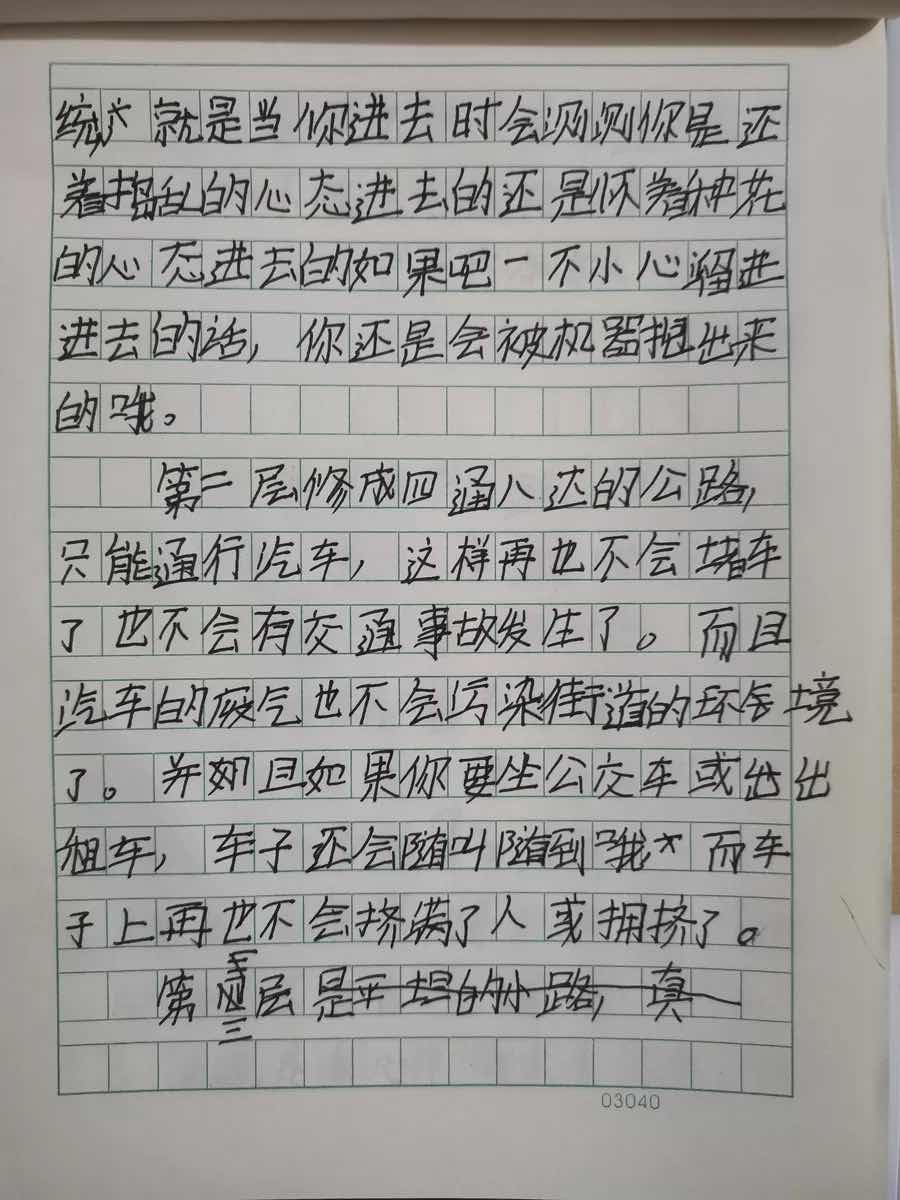 统, 就是当你进去时会测测你是还
着捣乱的心态进去的还是怀着种花
的心态进去的如果吧一不小心溜进
进去的话，你还是会被机器揪出来
的哦。
第二层修成四通八达的公路，
只能通行汽车，这样再也不会堵车
了也不会有交通事故发生了。而且
汽车的废气也不会污染街道的环境
了。并且如果你要坐公交车或出
租车，车子还会随叫随到哦 而车
子上再也不会挤满了人或拥挤了。
第三层是平坦的小路，真
03040